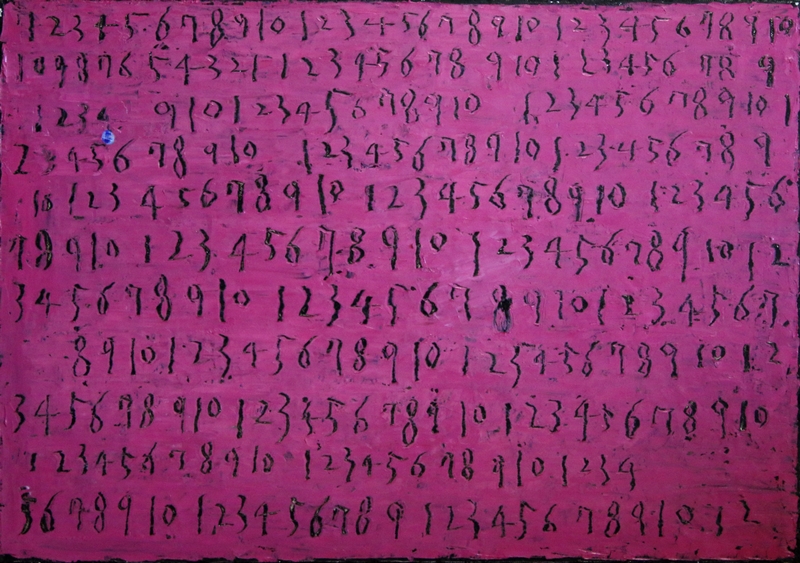 1 2 3 4 5 6 7 8 9 10 1 2 3 4 5 6 7 8 9 10 1 2 3 4 5 6 7 8 9 10
10 9 8 7 6 5 4 3 2 1 1 2 3 4 5 6 7 8 9 10 1 2 3 4 5 6 7 8 9
1 2 3 4 9 10 1 2 3 4 5 6 7 8 9 10 1 2 3 4 5 6 7 8 9 10 1
2 3 4 5 6 7 8 9 10 1 2 3 4 5 6 7 8 9 10 1 2 3 4 5 6 7 8 9
10 1 2 3 4 5 6 7 8 9 10 1 2 3 4 5 6 7 8 9 10 1 2 3 4 5 6
7 8 9 10 1 2 3 4 5 6 7 8 9 10 1 2 3 4 5 6 7 8 9 10 1 2
3 4 5 6 7 8 9 10 1 2 3 4 5 6 7 8 9 10 1 2 3 4 5 6 7
8 9 10 1 2 3 4 5 6 7 8 9 10 1 2 3 4 5 6 7 8 9 10 1 2
3 4 5 6 7 8 9 10 1 2 3 4 5 6 7 8 9 10 1 2 3 4 5 6 7 8 9 10
1 2 3 4 5 6 7 8 9 10 1 2 3 4 5 6 7 8 9 10 1 2 3 4
5 6 7 8 9 10 1 2 3 4 5 6 7 8 9 1 2 3 4 5 6 7 8 9 10 1 2